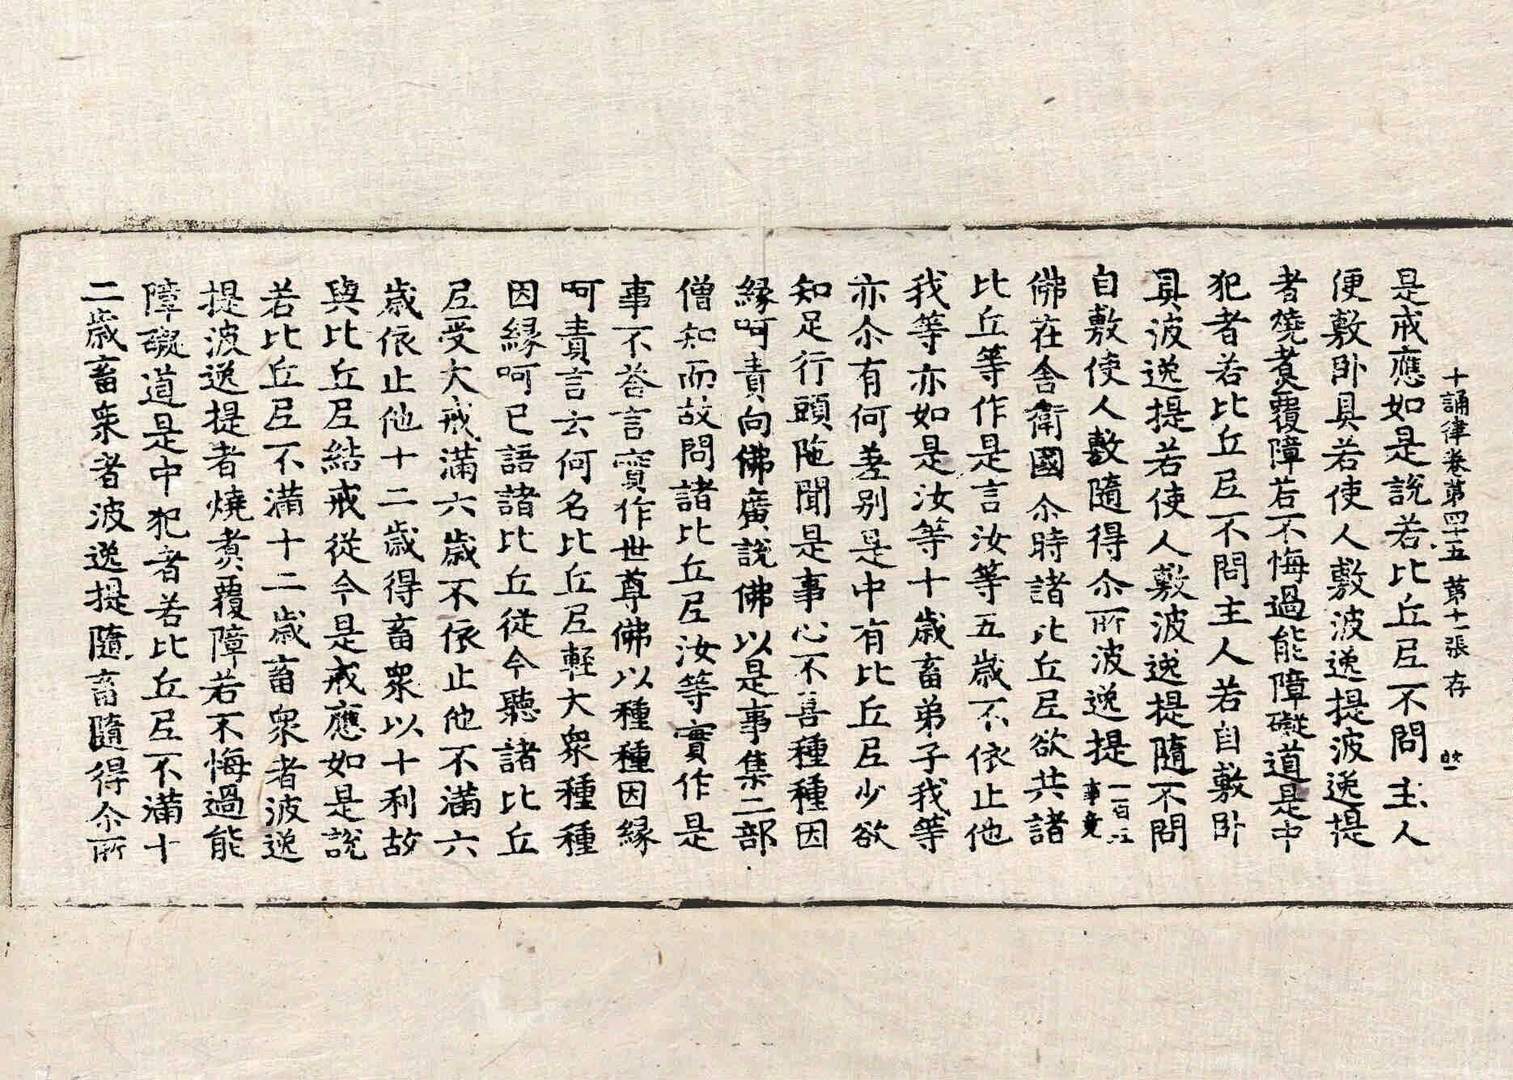 十誦律卷第四十五 第十一張 存
是戒應如是說若比丘尼不問主人
便敷卧具若使人敷波逸提波逸提
者燒煑覆障若不悔過能障礙道是中
犯者若比丘尼不問主人若自敷卧
具波逸提若使人敷波逸提隨不問
自敷使人敷隨得尒所波逸提一百五事竟
佛在舍衛國尒時諸比丘尼欲共諸
比丘等作是言汝等五歳不依止他
我等亦如是汝等十歳畜弟子我等
亦尒有何差別是中有比丘尼少欲
知足行頭陁聞是事心不喜種種因
縁呵責向佛廣說佛以是事集二部
僧知而故問諸比丘尼汝等實作是
事不荅言實作世尊佛以種種因縁
呵責言云何名比丘尼輕大衆種種
因縁呵已語諸比丘從今聽諸比丘
尼受大戒滿六歳不依止他不滿六
歳依止他十二歳得畜衆以十利故
與比丘尼結戒從今是戒應如是說
若比丘尼不滿十二歳畜衆者波逸
提波逸提者燒煑覆障若不悔過能
障礙道是中犯者若比丘尼不滿十
二歳畜衆者波逸提隨畜隨得尒所